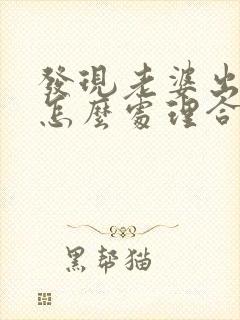 發現老婆出
怎麼處理合
黑帮猫